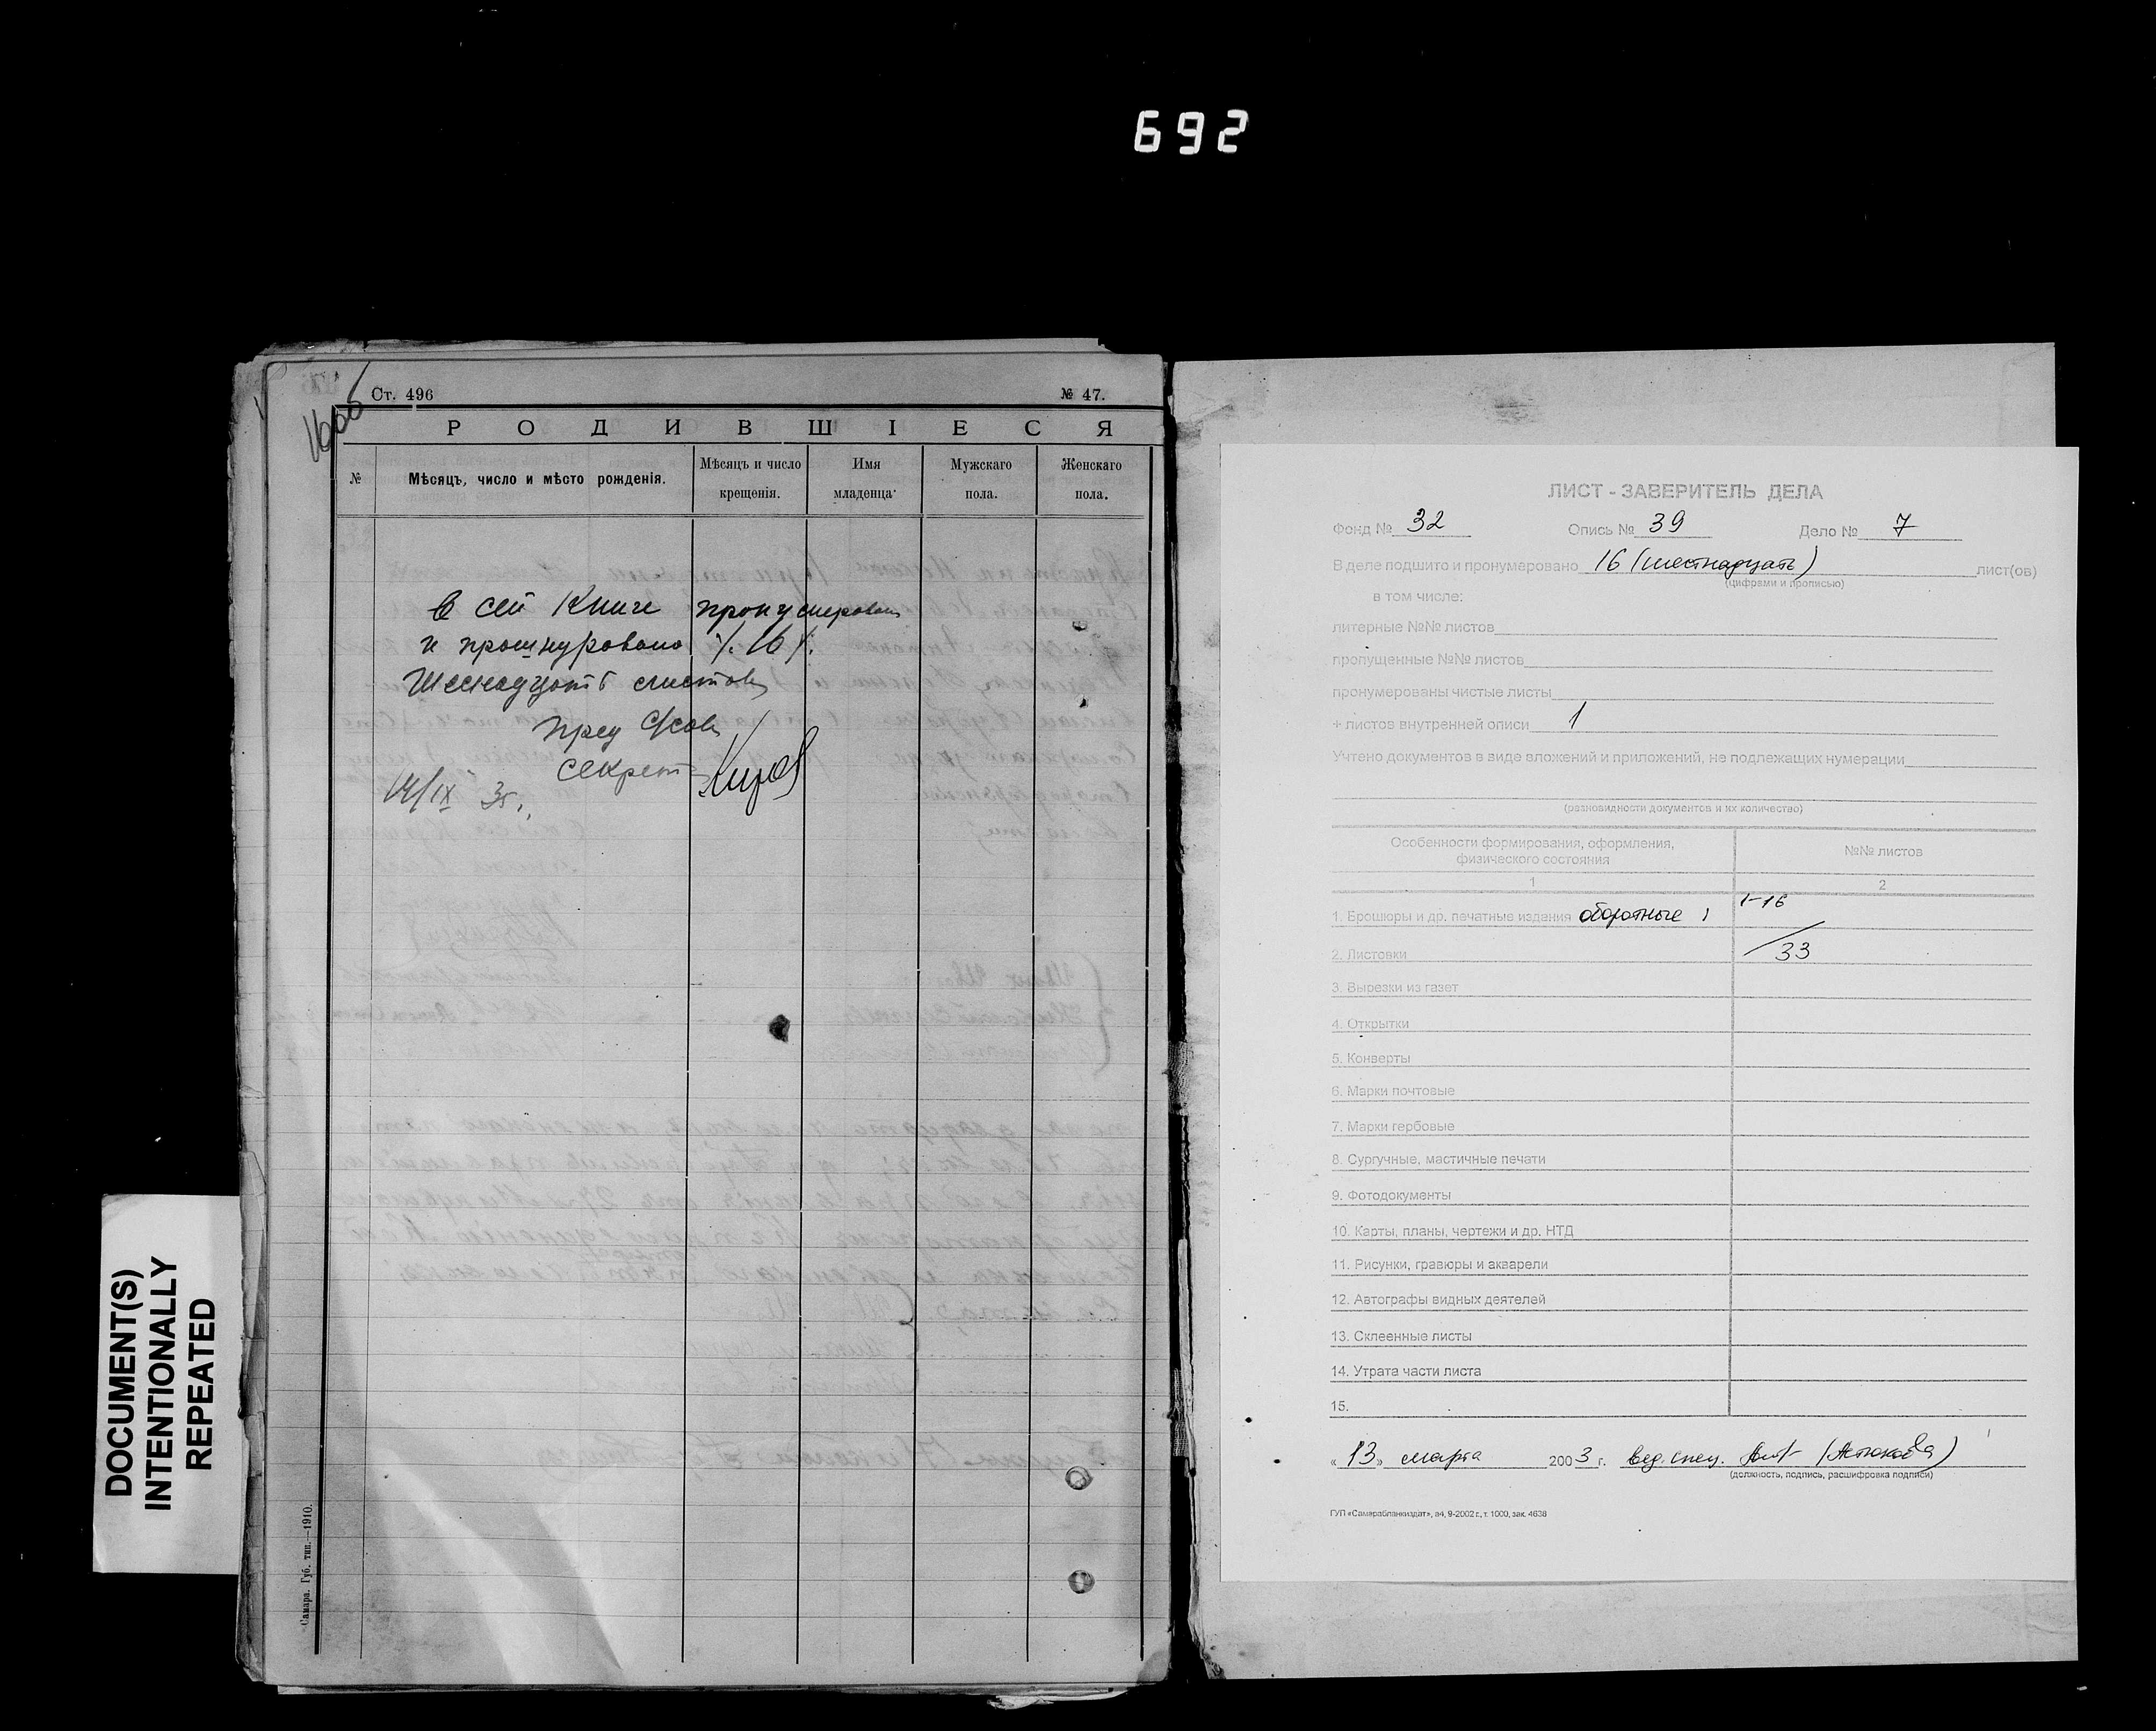 692
16об
Ст. 496
№ 47.
РОДИВШІЕСЯ
№
Мѣсяцъ, число и мѣсто рожденія.
Мѣсяцъ и число крещенія.
Имя младенца
Мужскаго пола.
Женскаго пола.
В сей Книге пронумеровано
и прошнуровано /. 16 /.
листов
пред
секрет
14/IX 35г.
Самара. Губ. тип.—1910.
DOCUMENT(S)
INTENTIONALLY
REPEATED
ЛИСТ - ЗАВЕРИТЕЛЬ ДЕЛА
Фонд № 32 Опись № 39 Дело № 7
В деле подшито и пронумеровано 16 (шестнадцать) лист(ов)
(цифрами и прописью)
в том числе:
литерные №№ листов
пропущенные №№ листов
пронумерованы чистые листы
+ листов внутренней описи 1
Учтено документов в виде вложений и приложений, не подлежащих нумерации
(разновидности документов и их количество)
Особенности формирования, оформления,
физического состояния
№№ листов
1
2
1. Брошюры и др. печатные издания оборотные 1-16
2. Листовки 33
3. Вырезки из газет
4. Открытки
5. Конверты
6. Марки почтовые
7. Марки гербовые
8. Сургучные, мастичные печати
9. Фотодокументы
10. Карты, планы, чертежи и др. НТД
11. Рисунки, гравюры и акварели
12. Автографы видных деятелей
13. Склеенные листы
14. Утрата части листа
15.
«13» марта 2003 г. вед. спец.
(должность, подпись, расшифровка подписи)
ГУП «Самарабланкиздат», а4, 9-2002 г., т. 1000, зак. 4638